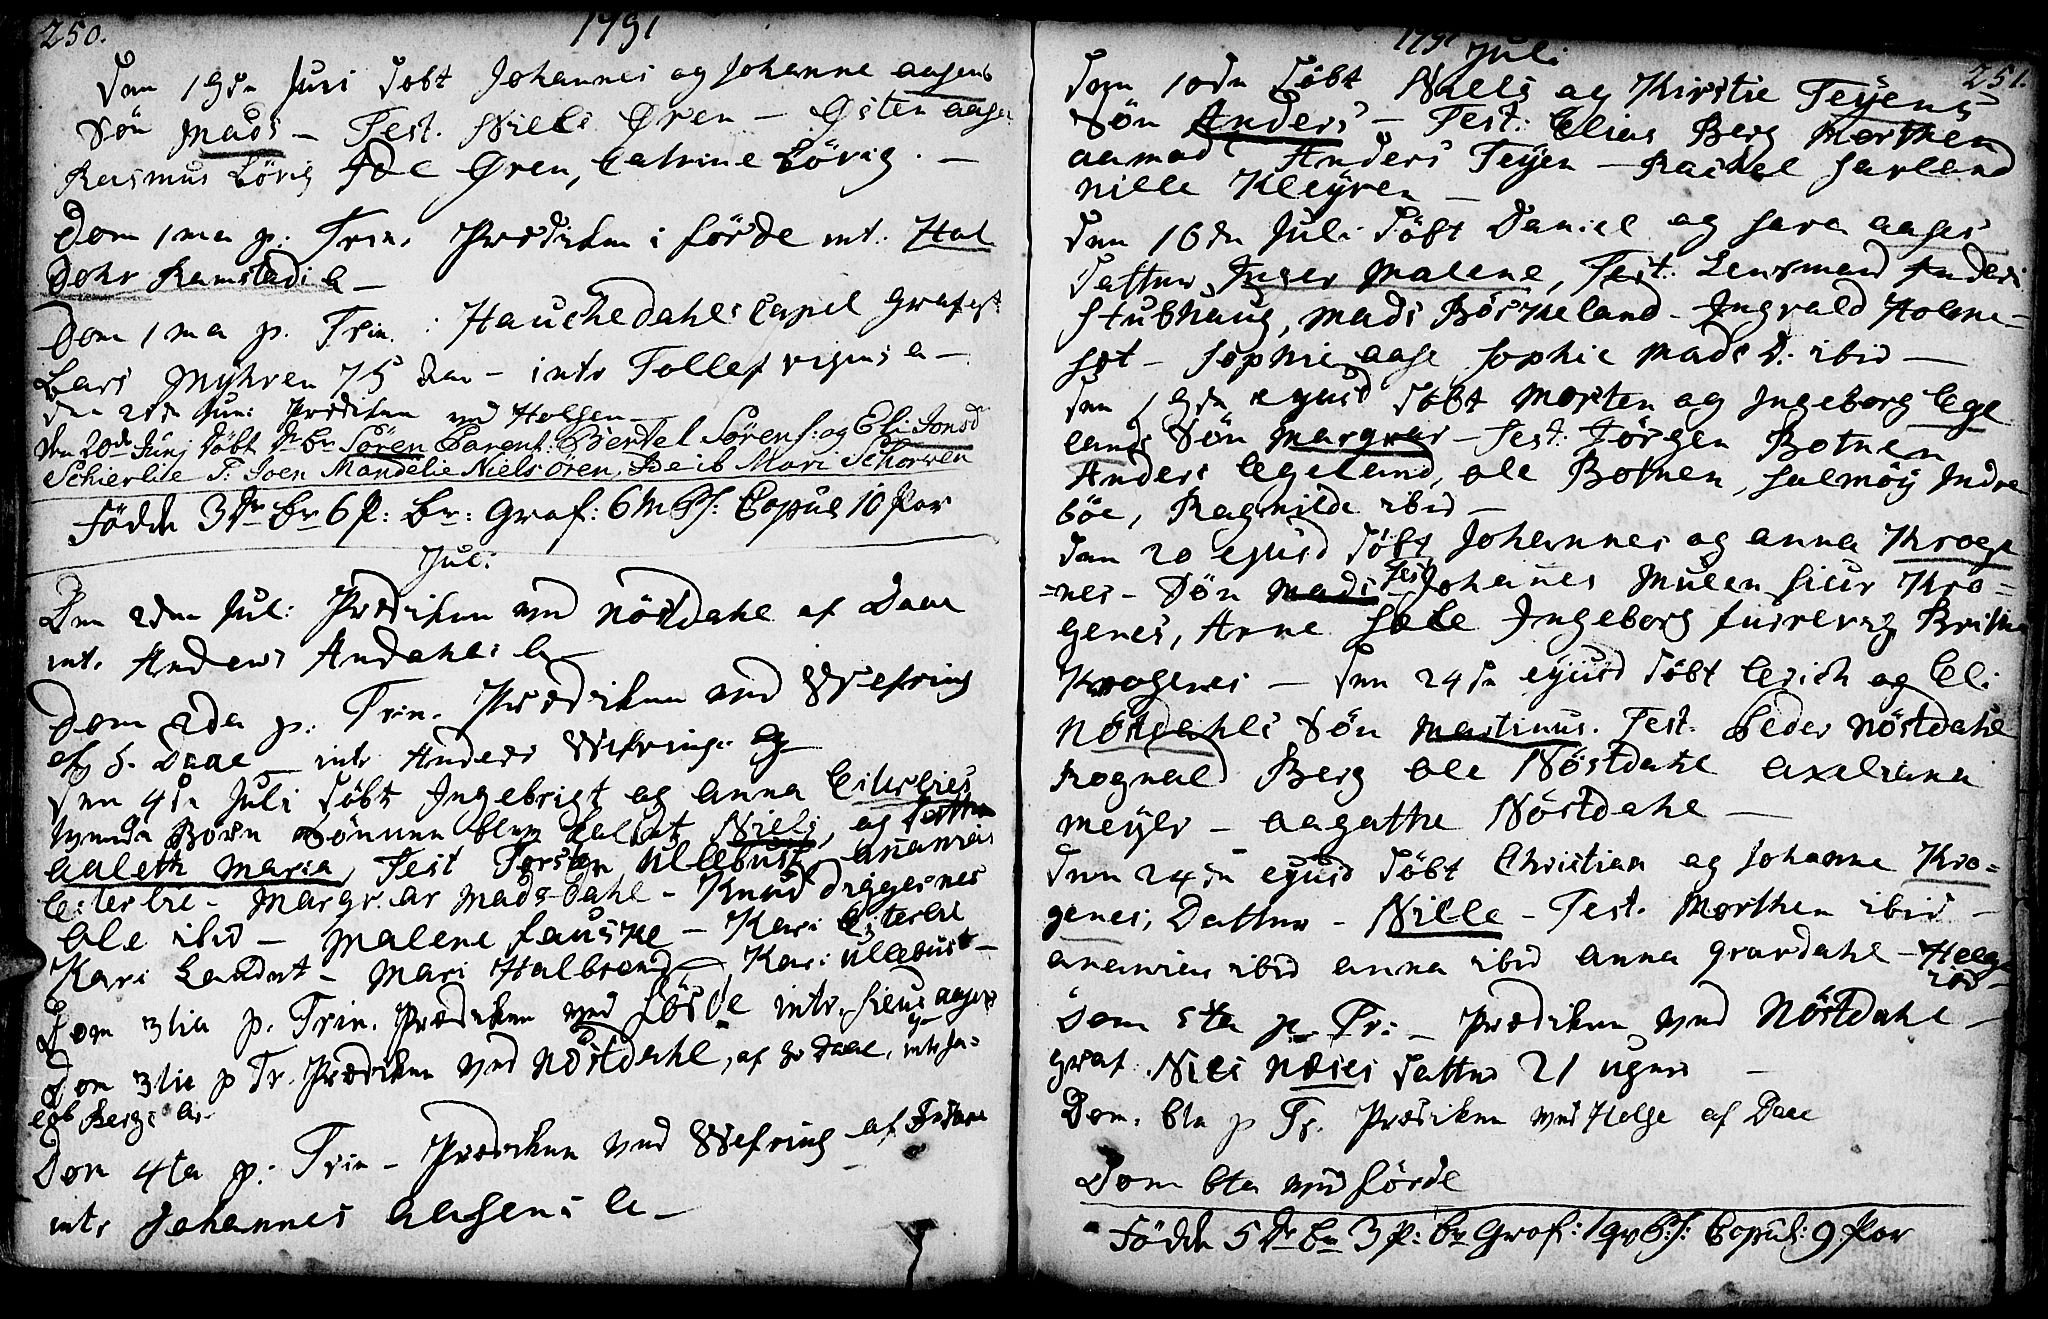 250.
1791
Den 19de Juni döbt Johannes og Johanne aasens
Sön Mads - Test. Niels Øren - Østen aase
Rasmus Lövig Ide Øren, Catrine Lövig. -
Dom 1ma p. Trin. Prædiken i förde int. Hal
Dohr Ramstadi C -
Dom 1ma p. Trin: Hauchedahls Capel Grafest
Lars Myhren 75 Aar - intr Tollef vigens a -
den 2de Juni Prediken ved Holsen -
Den 20de Junj döbt Dr. Br Sören Parent: Bertel Sörens: og Eli Jonsd
Schierlie T: Joen Mandelie Niels ören, Beib Mari Schorven
Födde 3 Dr Br 6 P: Br: Graf: 6 M Copul 10 Par
Jul:
Den 2den Jul: Prediken ved Nöstdahl af Daae
int. Anders Andahls C -
Dom 2da p. Trin. Prædiken ved Wefring
af H. Daae - intr Anders Wefrings C -
Den 4de Juli döbt Ingebrigt og anna Eiterlies
Börn Sönnen blev kaldet Niels, og Datter
aaleth Maria, Test Torsten Ullebust ananias
Eiterlie - Margr. ar Mads Dahl - Knud Diggernes
Ole ibid - Malene fauske - Kari Eiterlie
Kari - Mari Halbrend - Kari Ullebust -
Dom 3tia p. Trin. Prædiken ved förde intr. Siur aases
Dom 3tia p Tr. Prædiken ved Nöstdahl, af Hr Daae, intr Ja=
cob Bergs C.
Dom 4ta p. Trin - Prædiken ved Wefring af
intr Johannes Aasens C -
1791 Juli
251.
Den 10de döbt Niels og Kirstie Teyens
Sön Anders - Test: Elias Berg Morthen
aamod Anders Teyen - Rachel Harland
Nille Kleyven -
Den 16de Juli döbt Daniel og Sara aases
Datter Inger Malene, Test: Lensmand Anders
Stubhaug, Mads Böskeland - Ingvald Holme-
set - Sophie aase Sophie Mads D. ibid -
Den 19de ejusd döbt Morten og Ingeborg Ege
lands Sön Margvar - Test: Jörgen Botnen
Anders Egeland, Ole Botnen, Salmöy Indre
böe, Ragnilde ibid -
Den 20 ejusd döbt Johannes og anna Kroge
=nes - Sön Mads - Test Johanes Mulen Siur Kro=
genes, Anne Sole Ingeborg furevig Britha
Krogenes - Den 24de ejusd döbt Erich og Eli
Nöstdahls Sön Martinus. Test. Peder Nöstdahl
Rognald Berg Ole Nöstdahl Axeliana
Meyer - Aagathe Nöstdahl -
Den 24de ejusd döbt Christian og Johanne Kro=
genes, Datter - Nille - Test. Morthen ibid -
ananias ibid anna ibid Anna Gravdahl - Helge
ibid -
Dom 5ta p. Tri - Prædiken ved Nöstdahl -
graf. Niels Næses datter 21 uger -
Dom. 6ta p Tr. Prædiken ved Holse af Daae
Dom 6ta ved förde
Födde 5 Dr Br 3 P: Br Graf: 1 Copul: 9 Par